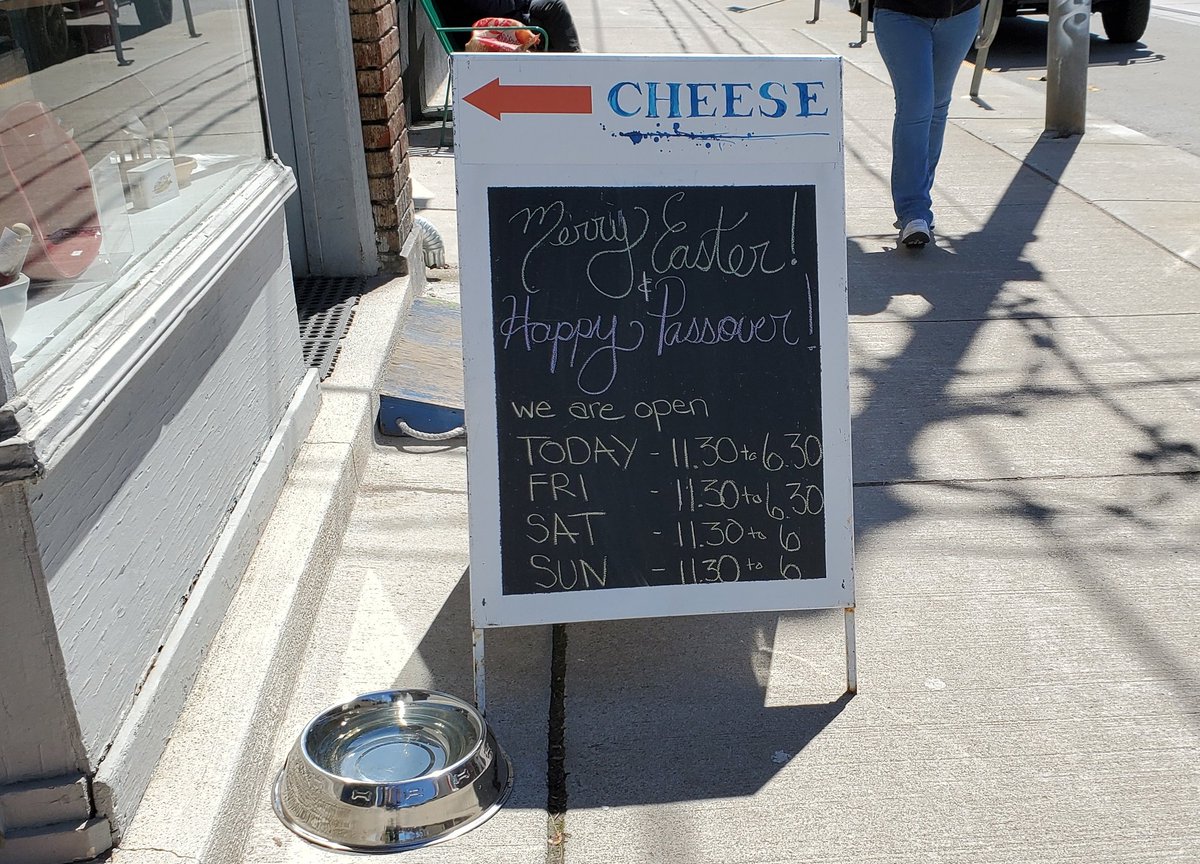 CHEESE
Merry Easter!
&
Happy Passover!
we are open
TODAY - 11.30 to 6.30
FRI - 11.30 to 6.30
SAT - 11.30 to 6
SUN - 11.30 to 6